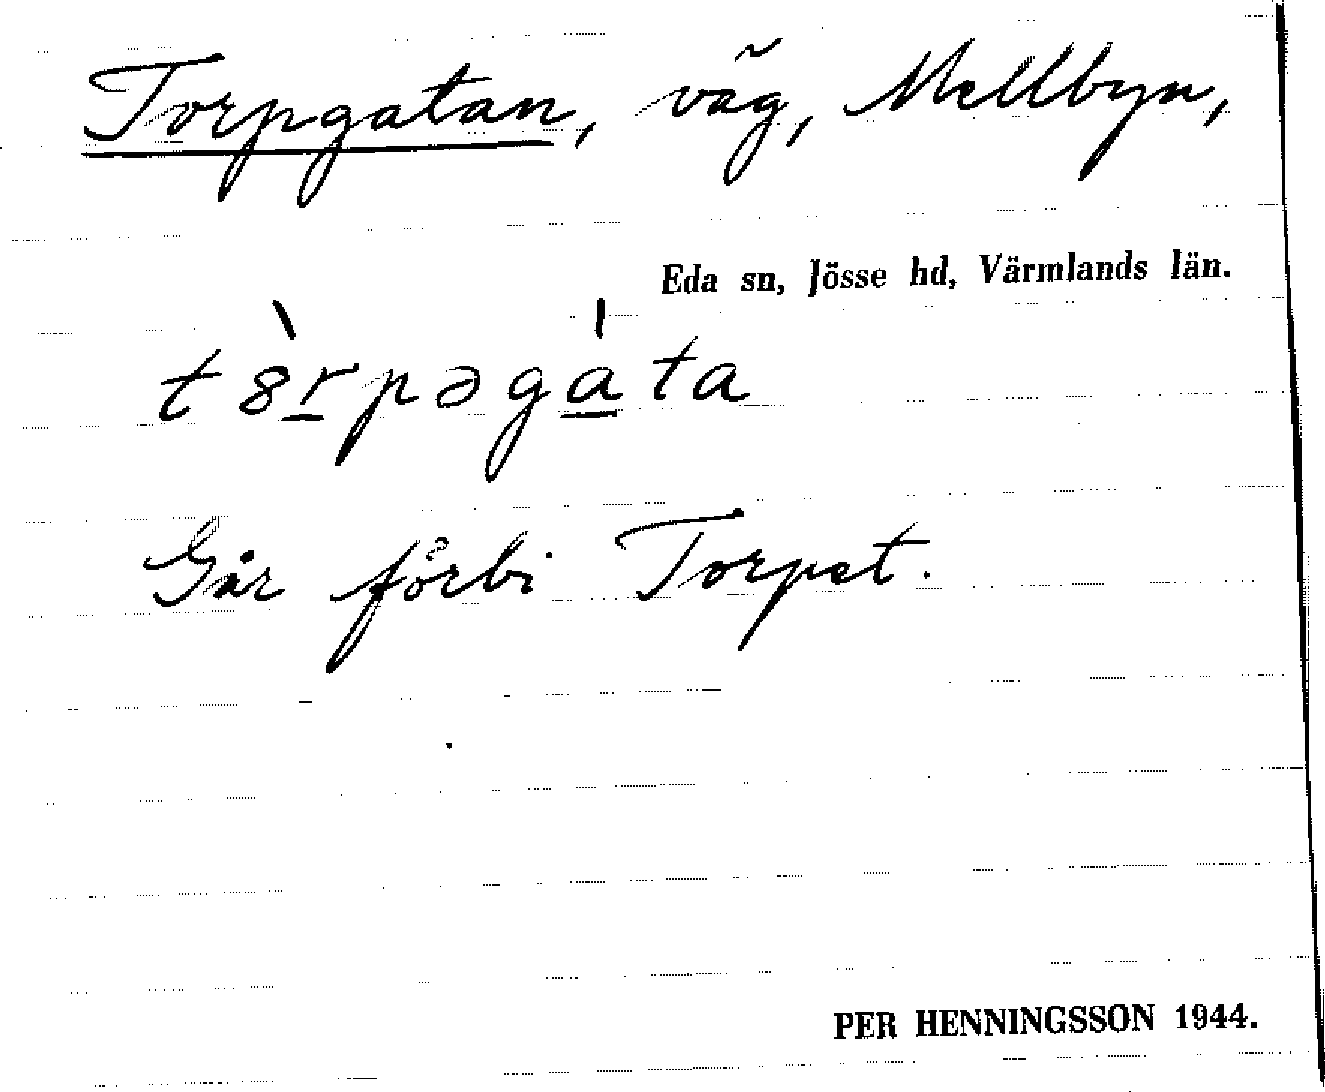 Torpgatan, väg, Mellbyn,
Eda sn, Jösse hd, Värmlands län.
t8̀rpəgáta
Går förbi Torpet.
PER HENNINGSSON 1944.